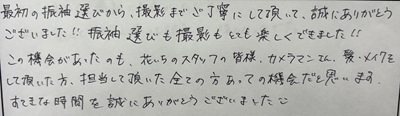 最初の振袖選びから、撮影までご丁寧にして頂いて、誠にありがとう
ございました!! 振袖選びも撮影もとても楽しくできました!!
この機会があったのも、花いちのスタッフの皆様、カメラマンさん、髪・メイクを
して頂いた方、担当して頂いた全ての方あっての機会だと思います。
すてきな時間を誠にありがとうございました